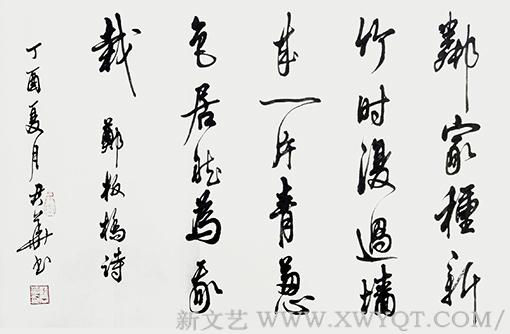 鄰家種新
竹时復過墙
来一片青葱
色居然為我
栽 鄭板橋詩
丁酉夏月君華书
新文艺 WWW.XWYOT.COM/